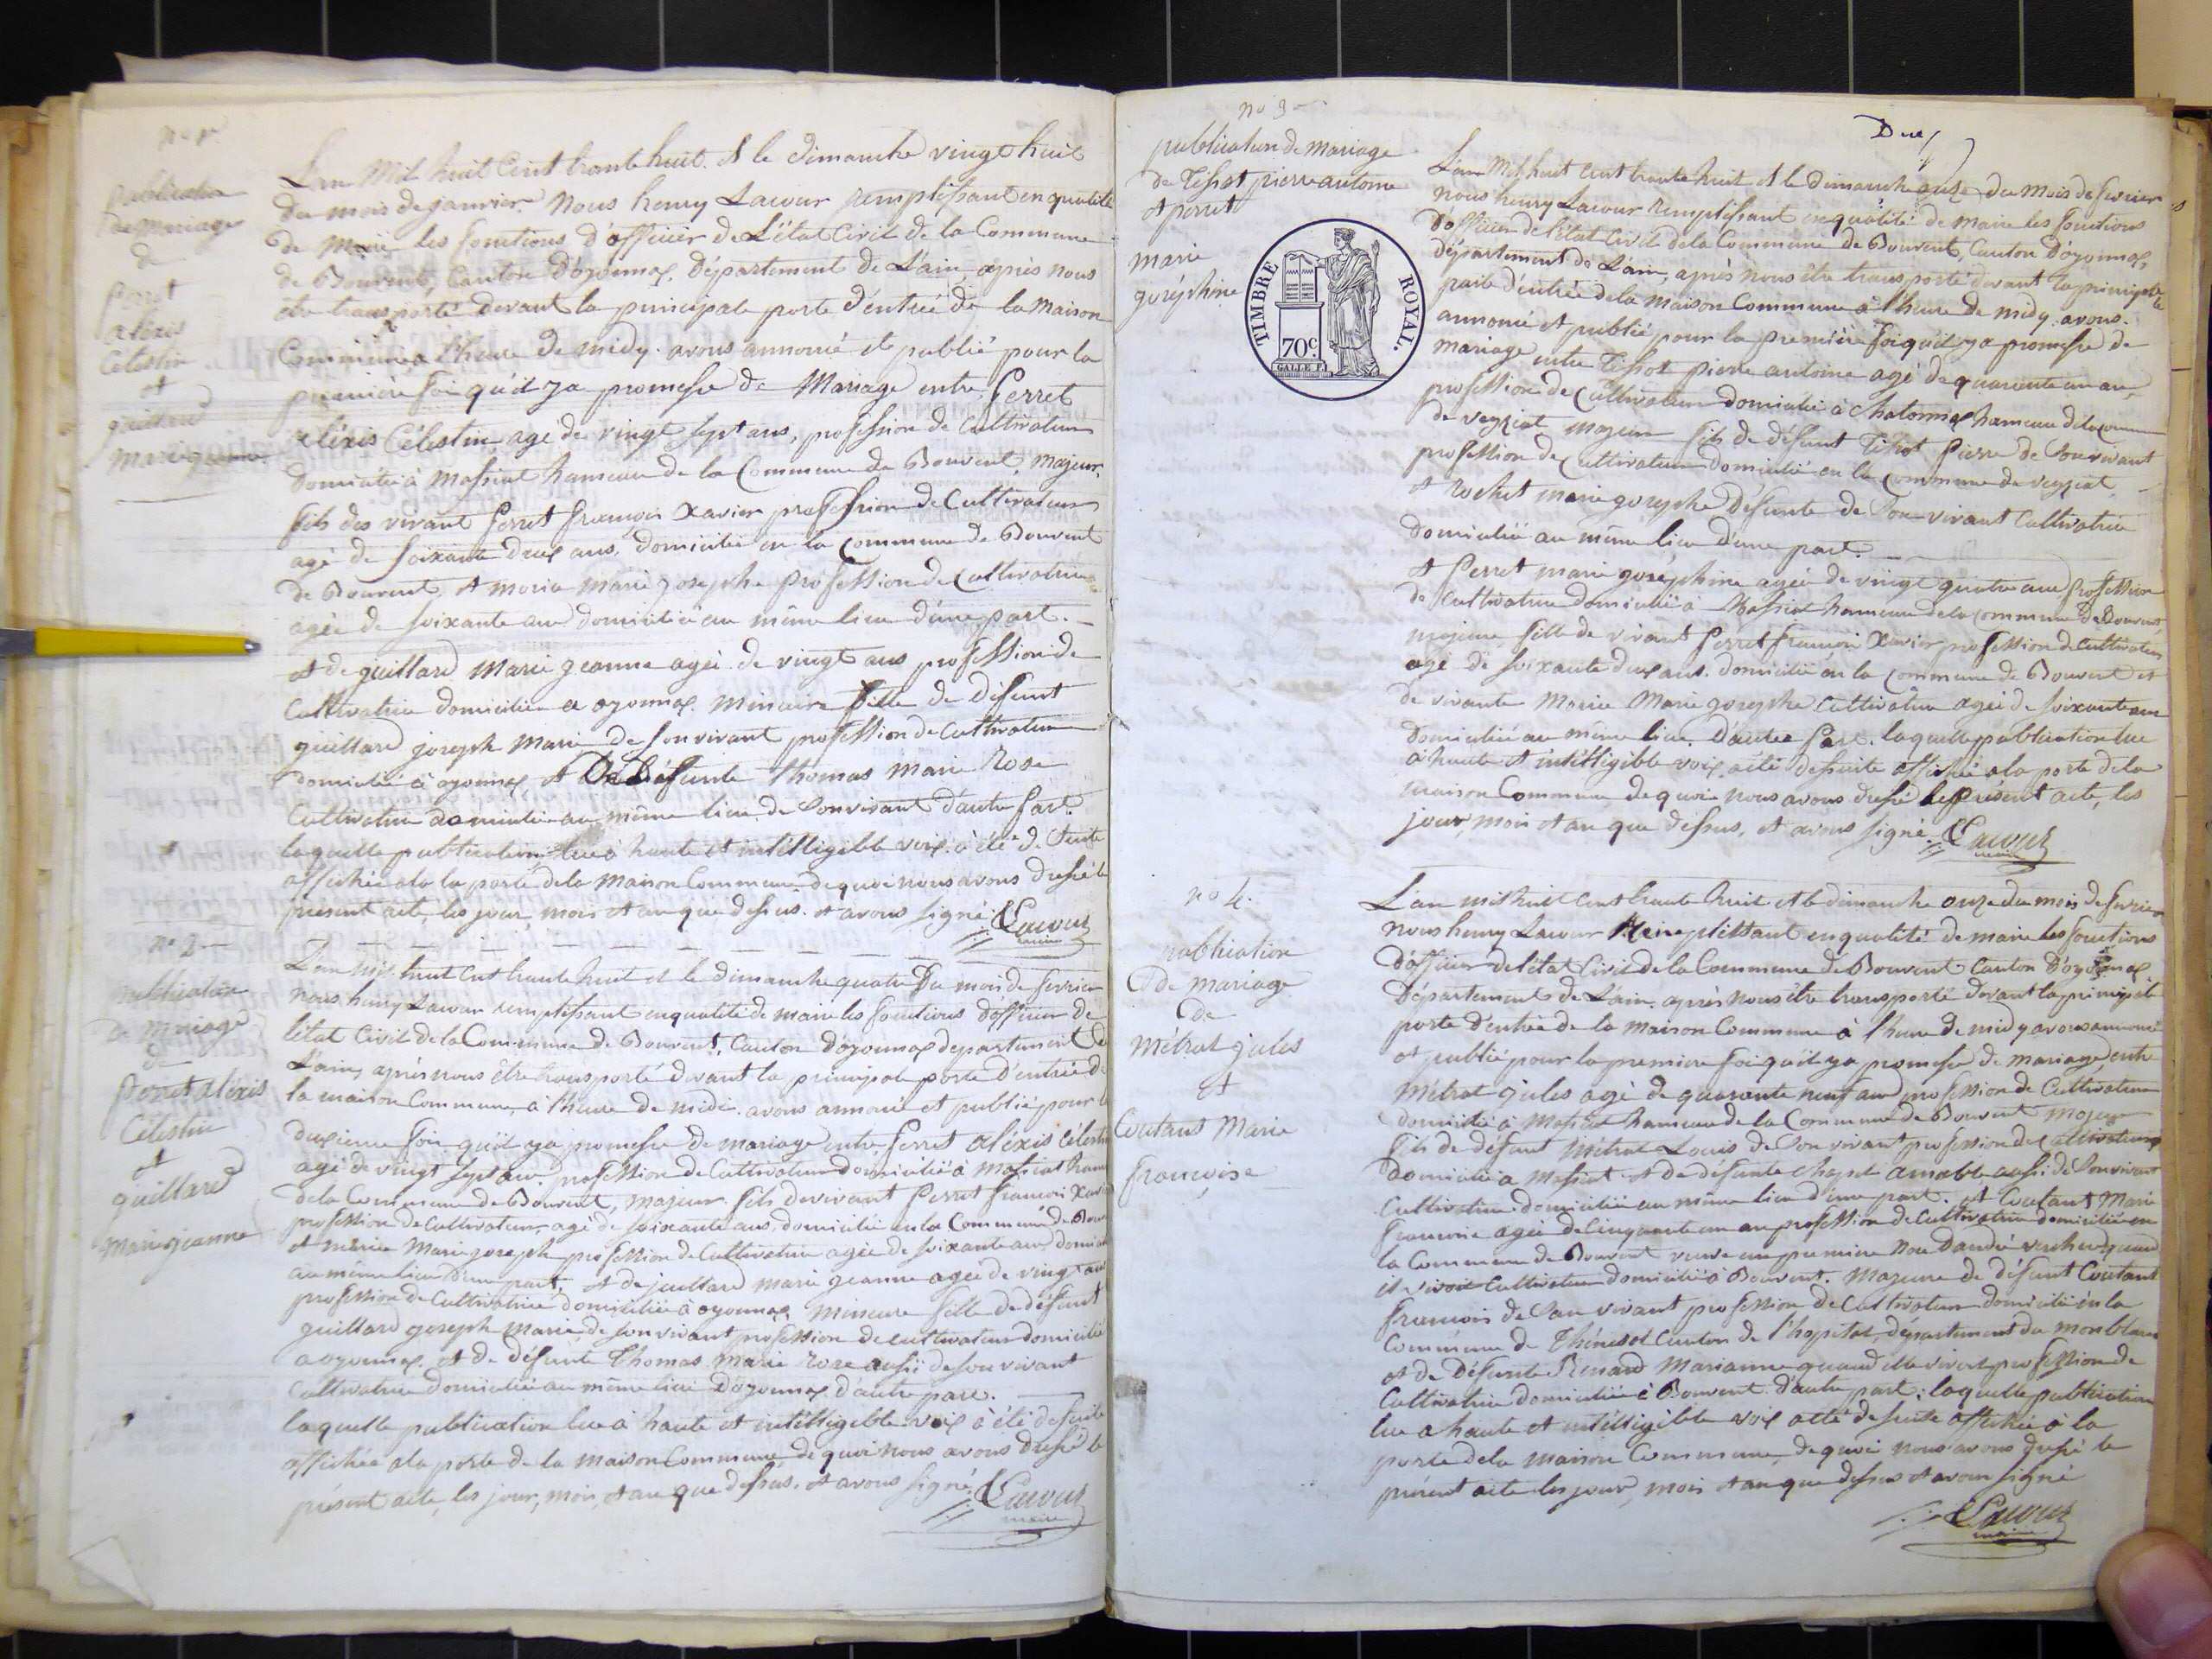 publication
de mariage
de
Perret
alexis
Celestin
et
guillard
marie jeanne
L'an Mil huit Cent trante huit. et le dimanche vingt huit
du mois de janvier. Nous henry Lacour remplissant en qualité
de Maire les fonctions d'officier de L'état Civil de la Commune
de Bouvent, Canton d'oyonnax, Département de L'ain après nous
être transporté devant la principale porte d'entrée de la Maison
Commune a l'heure de midy. avons annoncé et publié pour la
première foi qu'il y a promesse de Mariage entre Perret
alexis Célestin agé de vingt sept ans, profession de Cultivateur
domicilié à Massiat hameau de la Commune de Bouvent, Majeur,
fils des vivant Perret françois Xavier profession de Cultivateur
agé de soixante deux ans, domicilié en la Commune de Bouvent
de Bouvent, et moria Marie Josephe profession de Cultivatrice
agée de soixante ans domiciliée au même lieu d'une part.
et de guillard Marie jeanne agée de vingt ans profession de
Cultivatrice domiciliée a oyonnax. Mineure fille de défunt
guillard joseph Marie de son vivant profession de Cultivateur
domicilié à oyonnax, et De Défunte Thomas Marie Rose
Cultivatrice domiciliée au même lieu de Son vivant d'autre Part.
laquelle publication lue à haute et intélligible voix à été de Suite
affichée ala la porte de la Maison Commune de quoi nous avons dressé le
présent acte, les jour, mois et an que dessus. et avons signé. Lacour
maire
n° 2
publication
de Mariage
de
Perret alexis
Célestin
et
guillard
Marie jeanne
L'an mil huit Cent trante huit et le dimanche quatre Du mois de fevrier
nous henry Lacour remplissant en qualité de maire les fonctions d'officier de
l'état Civil de la Commune de Bouvent, Canton d'oyonnax département de
L'ain, après nous être transporté devant la principale porte d'entrée de
la maison Commune, à l'heure de midi. avons annoncé et publié pour la
deuxieme foi qu'il y a promesse de mariage entre Perret alexis Célestin
agé de vingt sept ans. profession de Cultivateur domicilié à Massiat
de la Commune de Bouvent, majeur fils de vivant Perret françois
profession de Cultivateur, agé de soixante ans, domicilié en la Commune de
et Marie Joseph profession de Cultivatrice agée de soixante ans
au même lieu d'une part, et de juillard Marie jeanne agée de vingt ans
profession de Cultivatrice domiciliée à oyonnax, mineure fille de défunt
guillard joseph Marie, de son vivant profession de cultivateur domicilié
a oyonnax. et de défunte Thomas Marie Rose aussi de son vivant
Cultivatrice domiciliée au même lieu d'oyonnax d'autre part.
laquelle publication lue à haute et intélligible voix à été de suite
affichée ala porte de la maison Commune de quoi nous avons dressé le
présent acte, les jour, mois, et an que dessus. et avons signé. Lacour
maire
n° 3
publication de mariage
de Tissot pierre antoine
et perret
marie
joséphine
TIMBRE ROYAL.
70c.
L'an Mil huit Cent trante huit et le Dimanche onze du mois de fevrier
nous henry Lacour remplissant en qualité de maire les fonctions
d'officier de l'état Civil de la Commune de Bouvent, Canton d'oyonnax,
département de L'ain, après nous être transporté devant la principale
porte d'entrée de la maison Commune a l'heure de midy. avons.
annoncé et publié pour la première foi qu'il y a promesse de
mariage entre Tissot pierre antoine agé de quarante un an,
profession de Cultivateur domicilié à Chatonnax hameau de la Com
de veyziat majeur fils de défunt Tissot Pierre de Son vivant
profession de Cultivateur domicilié en la Commune de veyziat
et Rochet marie josephe défunte de Son vivant Cultivatrice
domiciliée au même lieu d'une part.
et Perret marie joséphine agée de vingt quatre ans profession
de Cultivatrice domiciliée à Massiat hameau de la commune de Bouvent,
majeure fille de vivant Perret françois Xavier profession de Cultivateur
agé de soixante deux ans. domicilié en la Commune de Bouvent et
de vivante Marie Josephe Cultivatrice agée de soixante ans
domiciliée au même lieu. d'autre Part. laquelle publication lue
à haute et intélligible voix, a été dessuite affichée ala porte de la
maison Commune de quoi nous avons dressé le présent acte, les
jour, mois et an que dessus, et avons signé. Lacour
maire
n° 4.
publication
de mariage
de
Métrat jules
et
Coutant Marie
françoise
L'an mil huit Cent trante huit et le dimanche onze du mois de fevrier
nous henry Lacour Remplissant en qualité de maire les fonctions
d'officier de l'état Civil de la Commune de Bouvent Canton d'oyonnax
Département de L'ain, après nous être transporté devant la principale
porte d'entrée de la maison Commune à l'heure de midy avons annoncé
et publié pour la premiere foi qu'il y a promesse de mariage entre
Métrat jules agé de quarante neuf ans profession de Cultivateur
domicilié à Massiat hameau de la Commune de Bouvent majeur
fils de défunt Métrat Louis de Son vivant profession de Cultivateur
domicilié a Massiat et de défunte amable aussi de Son vivant
Cultivatrice domiciliée au même lieu d'une part. et Coutant Marie
françoise agée de Cinquante un an profession de Cultivatrice domiciliée en
la Commune de Bouvent veuve en premiere quand
il vivoit Cultivateur domicilié à Bouvent. Majeure de défunt Coutant
françois de Son vivant profession de Cultivateur domicilié en la
Commune de Thénesol Canton de l'hopital, département du monblanc
et de Défunte Marianne quand elle vivoit profession de
Cultivatrice domiciliée à Bouvent d'autre part: laquelle publication
lue a haute et intélligible voix a été de suite affichée à la
porte dela maison Commune, de quoi nous avons dressé le
présent acte les jour, mois et an que dessus et avons signé
Lacour
maire